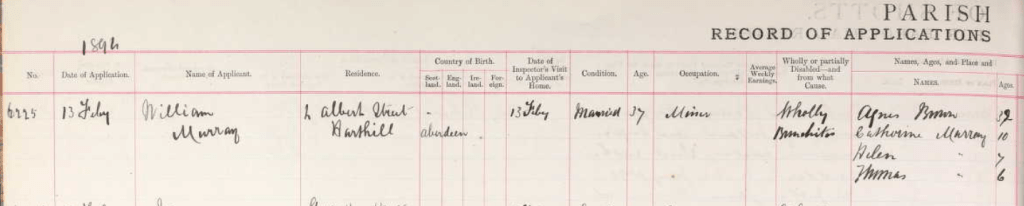 PARISH
RECORD OF APPLICATIONS
1896
No. Date of Application. Name of Applicant. Residence. Country of Birth. Scotland. England. Ireland. Foreign. Date of Inspector's Visit to Applicant's Home. Condition. Age. Occupation. Average Weekly Earnings. Wholly or partially Disabled—and from what Cause. Names, Ages, and Place and
NAMES. Ages.
6225 13 Feby William Murray Albert Street Harthill aberdeen 13 Feby Married 37 Miner Wholly Bronchitis Agnes Brown 32
Catherine Murray 10
Helen " 7
Thomas " 6